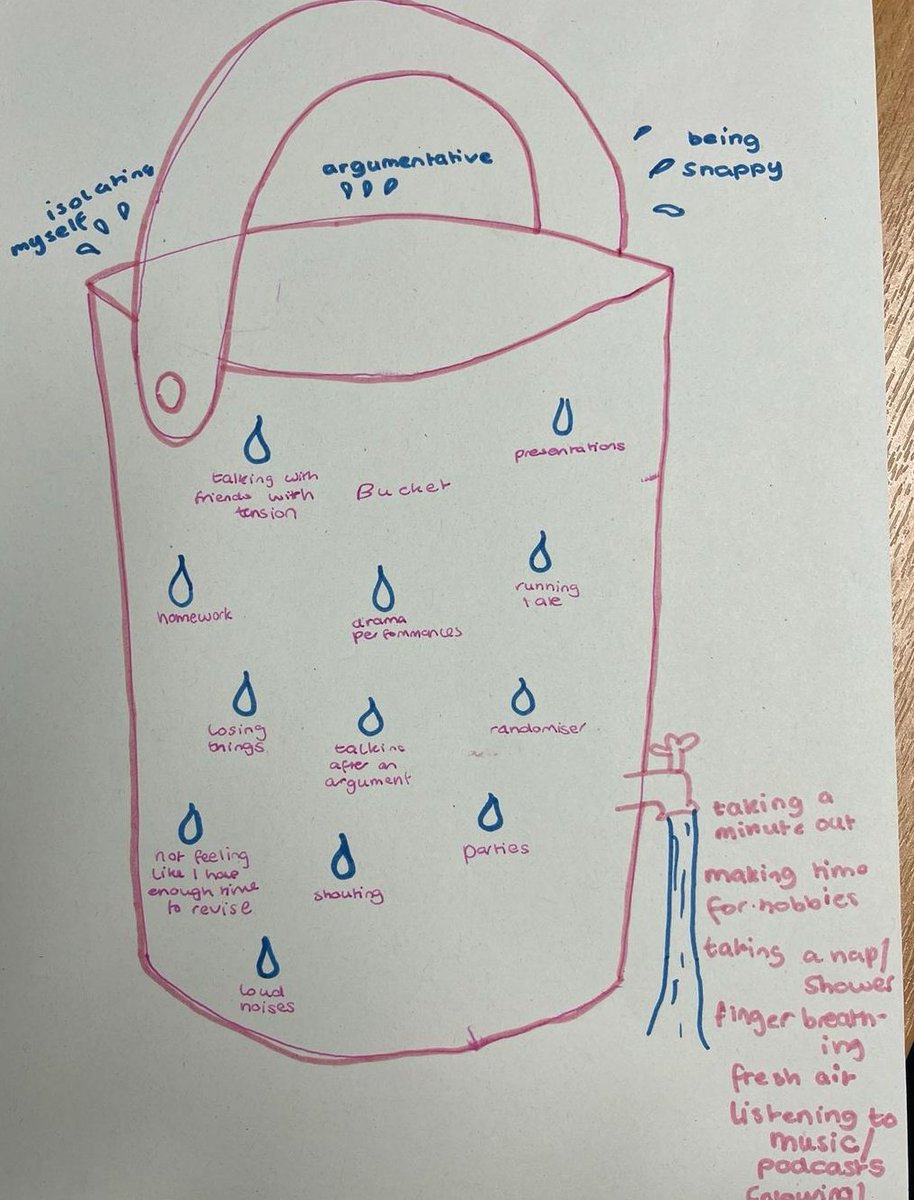 being
snappy
argumentative
isolating
myself
talking with
friends with
tension
Bucket
presentations
homework
drama
performances
running
late
losing
things
talking
after an
argument
randomiser
not feeling
like I have
enough time
to revise
shouting
parties
loud
noises
taking a
minute out
making time
for hobbies
taking a nap/
shower
finger breath-
ing
fresh air
listening to
music/
podcasts